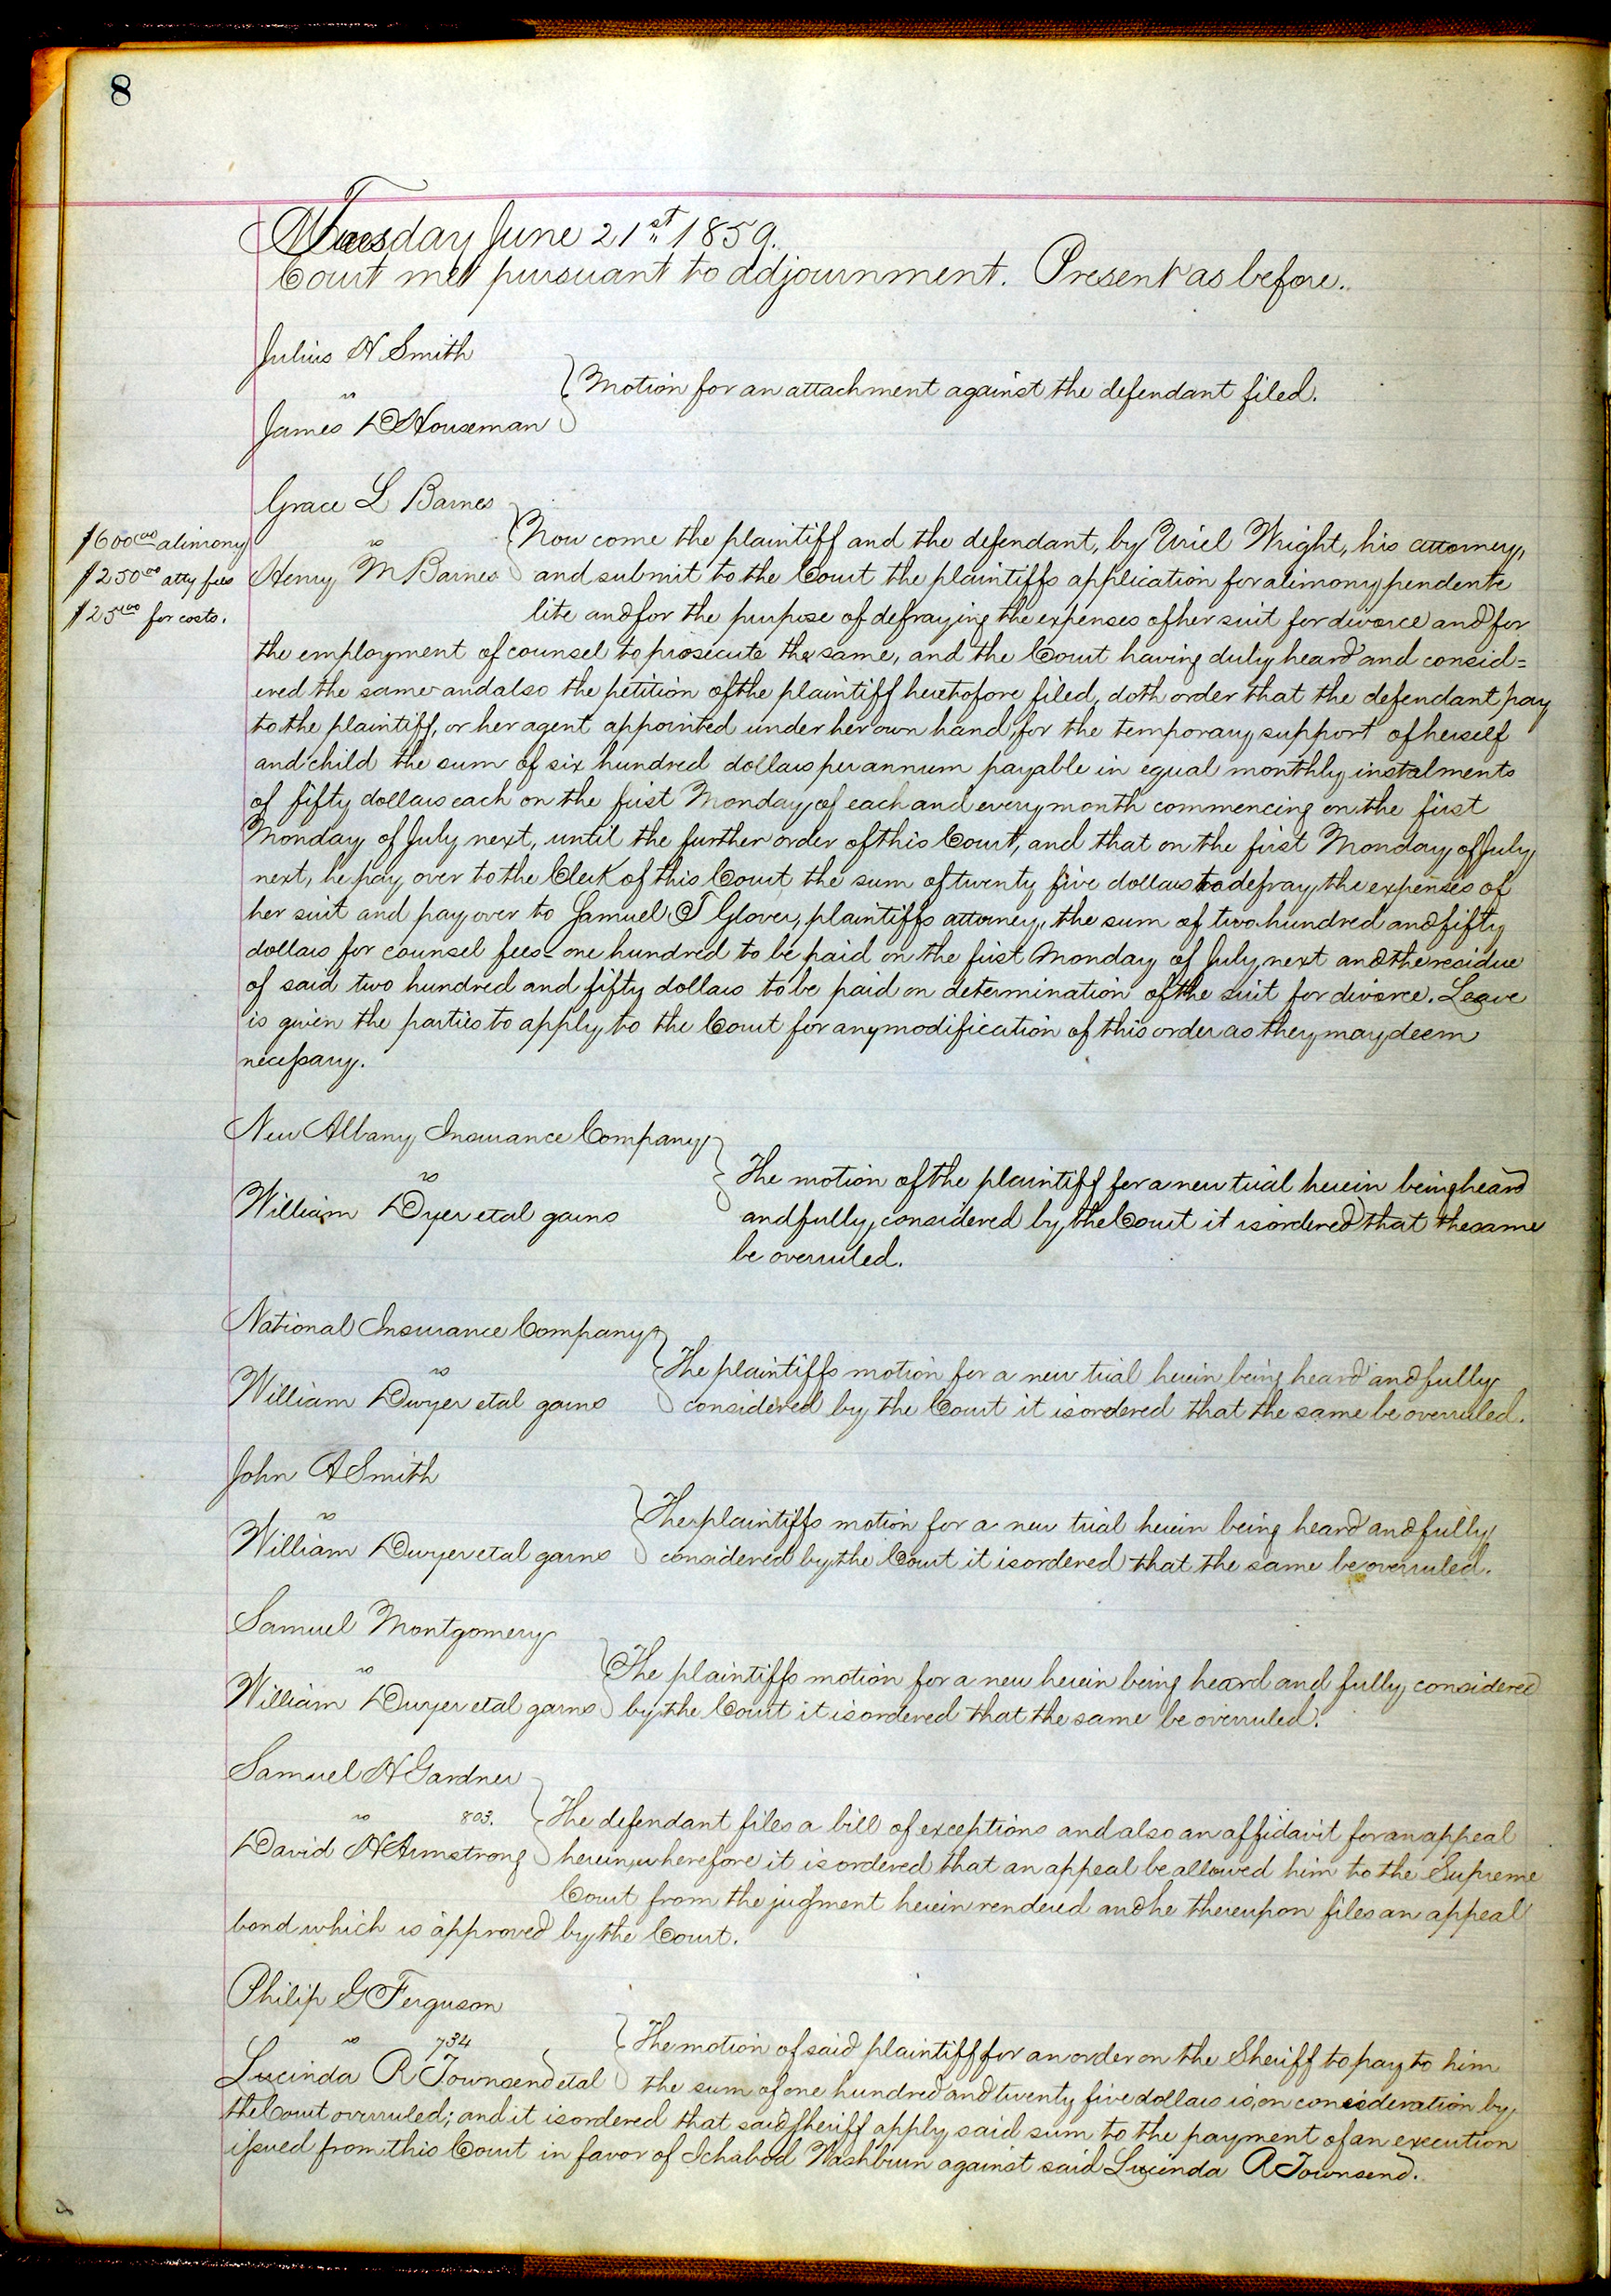 8
Tuesday June 21st 1859.
Court met pursuant to adjournment. Present as before.
Julius H Smith
vs
James D Houseman
Motion for an attachment against the defendant filed.
Grace L Barnes
vs
Henry M Barnes
$600.00 alimony
$250.00 atty fees
$25.00 for costs.
Now come the plaintiff and the defendant, by Uriel Wright, his attorney,
and submit to the Court the plaintiffs application for alimony pendente
lite and for the purpose of defraying the expenses of her suit for divorce and for
the employment of counsel to prosecute the same, and the Court having duly heard and consid=
ered the same and also the petition of the plaintiff heretofore filed, doth order that the defendant pay
to the plaintiff, or her agent appointed under her own hand, for the temporary support of herself
and child the sum of six hundred dollars per annum payable in equal monthly instalments
of fifty dollars each on the first Monday of each and every month commencing on the first
Monday of July next, until the further order of this Court, and that on the first Monday of July
next, he pay over to the Clerk of this Court the sum of twenty five dollars to defray the expenses of
her suit and pay over to Samuel T Glover, plaintiffs attorney, the sum of two hundred and fifty
dollars for counsel fees - one hundred to be paid on the first Monday of July next and the residue
of said two hundred and fifty dollars to be paid on determination of the suit for divorce. Leave
is given the parties to apply to the Court for any modification of this order as they may deem
necessary.
New Albany Insurance Company
vs
William Dyer et al garns
The motion of the plaintiff for a new trial herein being heard
and fully considered by the Court it is ordered that the same
be overruled.
National Insurance Company
vs
William Dwyer et al garns
The plaintiffs motion for a new trial herein being heard and fully
considered by the Court it is ordered that the same be overruled.
John A Smith
vs
William Dwyer et al garns
The plaintiffs motion for a new trial herein being heard and fully
considered by the Court it is ordered that the same be overruled.
Samuel Montgomery
vs
William Dwyer et al garns
The plaintiffs motion for a new herein being heard and fully considered
by the Court it is ordered that the same be overruled.
Samuel H Gardner
vs 803.
David H Armstrong
The defendant files a bill of exceptions and also an affidavit for an appeal
herein, wherefore it is ordered that an appeal be allowed him to the Supreme
Court from the judgment herein rendered and he thereupon files an appeal
bond which is approved by the Court.
Philip G Ferguson
vs 734
Lucinda R Townsend et al
The motion of said plaintiff for an order on the Sheriff to pay to him
the sum of one hundred and twenty five dollars is, on consideration by
the Court overruled; and it is ordered that said sheriff apply said sum to the payment of an execution
issued from this Court in favor of Ichabod Washburn against said Lucinda R Townsend.